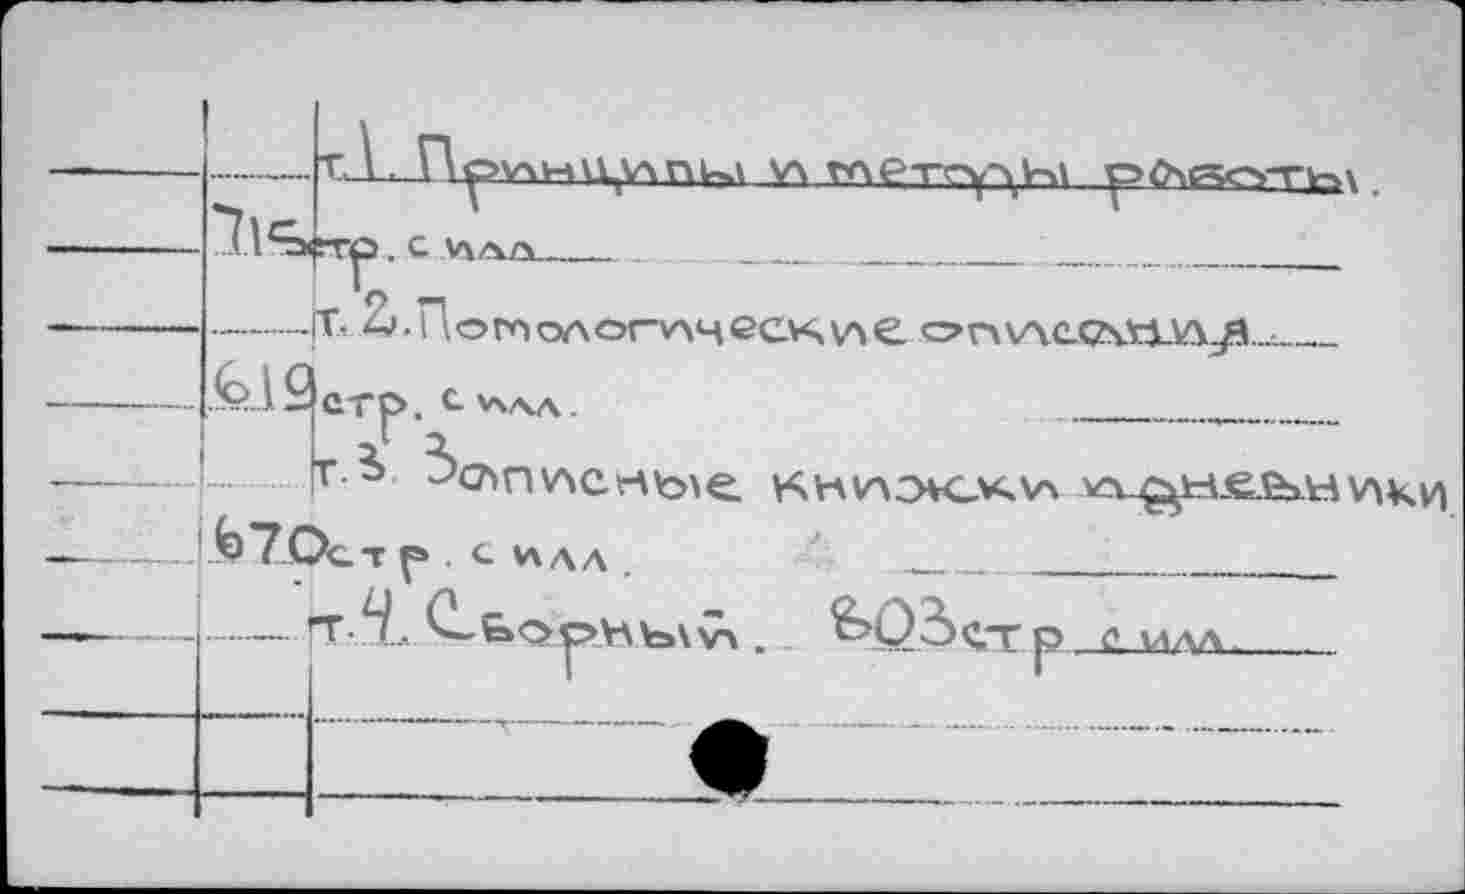 т. 1. Принципы и методы работы.
715 стр. с илл
т. 2. Помологические описания.
619 стр. с илл.
т. 3 Записные книжки и дневники
670 стр. с илл.
т. 4. Сборный. 803 стр с илл.